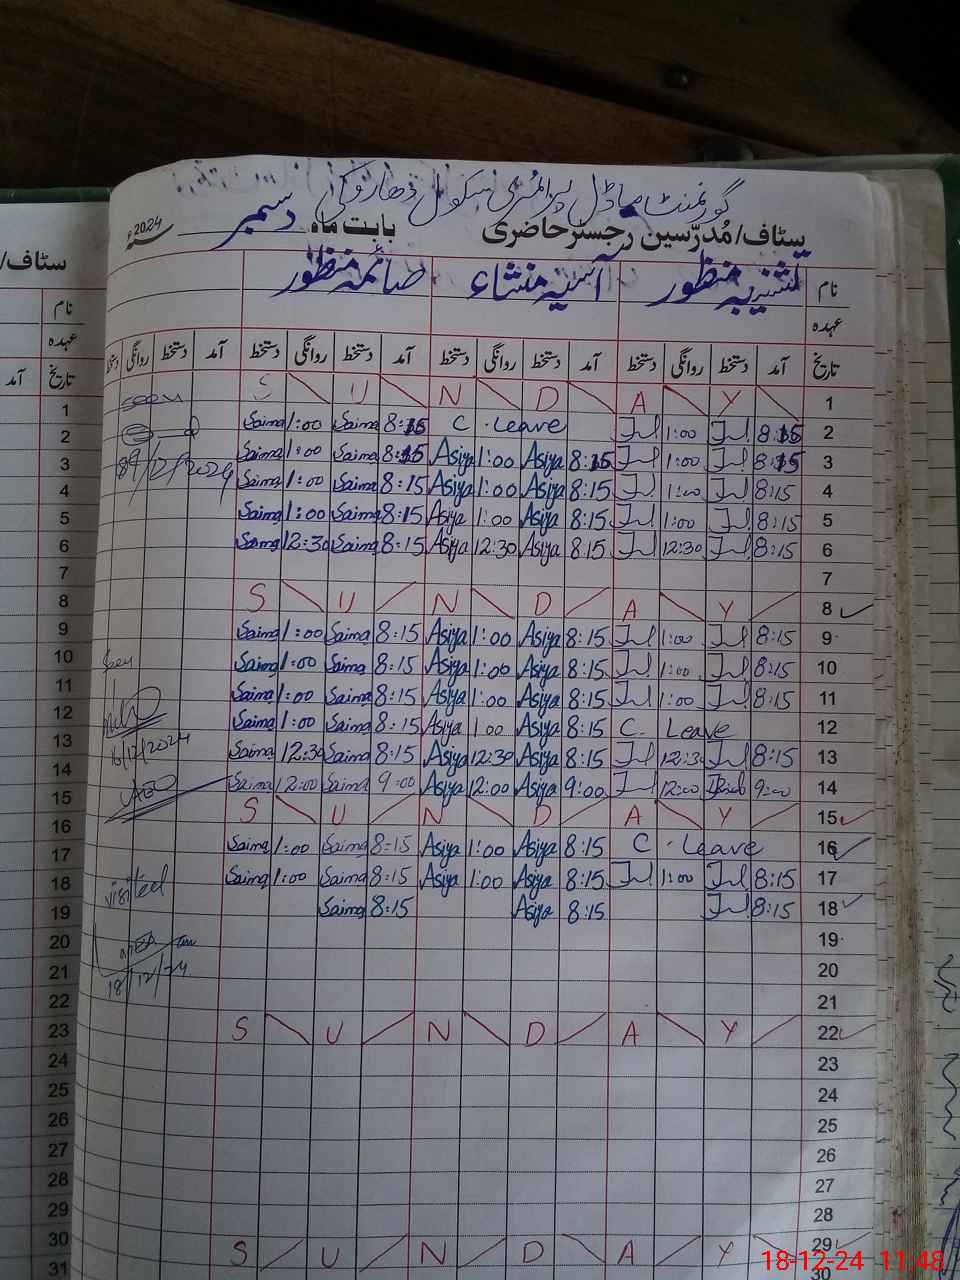 گورنمنٹ ماڈل پرائمری سکول دھاروکی
سٹاف/مُدرّسین رجسٹر حاضری بابت ماہ دسمبر سنہ 2024ء
نام منظور آسیہ منشاء صائمہ منظور
عہدہ
تاریخ آمد دستخط روانگی دستخط آمد دستخط روانگی دستخط آمد دستخط روانگی دستخط آمد دستخط روانگی
S U N D A Y 1
Saima 1:00 Saima 8:15 C. Leave 1:00 8:15 2
Saima 1:00 Saima 8:15 Asiya 1:00 Asiya 8:15 1:00 8:15 3
Saima 1:00 Saima 8:15 Asiya 1:00 Asiya 8:15 1:00 8:15 4
Saima 1:00 Saima 8:15 Asiya 1:00 Asiya 8:15 1:00 8:15 5
Saima 12:30 Saima 8:15 Asiya 12:30 Asiya 8:15 12:30 8:15 6
7
S U N D A Y 8
Saima 1:00 Saima 8:15 Asiya 1:00 Asiya 8:15 1:00 8:15 9
Saima 1:00 Saima 8:15 Asiya 1:00 Asiya 8:15 1:00 8:15 10
Saima 1:00 Saima 8:15 Asiya 1:00 Asiya 8:15 1:00 8:15 11
Saima 1:00 Saima 8:15 Asiya 1:00 Asiya 8:15 C. Leave 12
Saima 12:30 Saima 8:15 Asiya 12:30 Asiya 8:15 12:30 8:15 13
Saima 12:00 Saima 9:00 Asiya 12:00 Asiya 9:00 12:00 9:00 14
S U N D A Y 15
Saima 1:00 Saima 8:15 Asiya 1:00 Asiya 8:15 C. Leave 16
Saima 1:00 Saima 8:15 Asiya 1:00 Asiya 8:15 1:00 8:15 17
Saima 8:15 Asiya 8:15 8:15 18
19
20
21
S U N D A Y 22
23
24
25
26
27
28
S U N D A Y 29
30
seen
09/12/2024
seen
16/12/2024
AEO
visited
18/12/24
سٹاف/
نام
عہدہ
تاریخ آمد
1
2
3
4
5
6
7
8
9
10
11
12
13
14
15
16
17
18
19
20
21
22
23
24
25
26
27
28
29
30
31
18-12-24 11:48